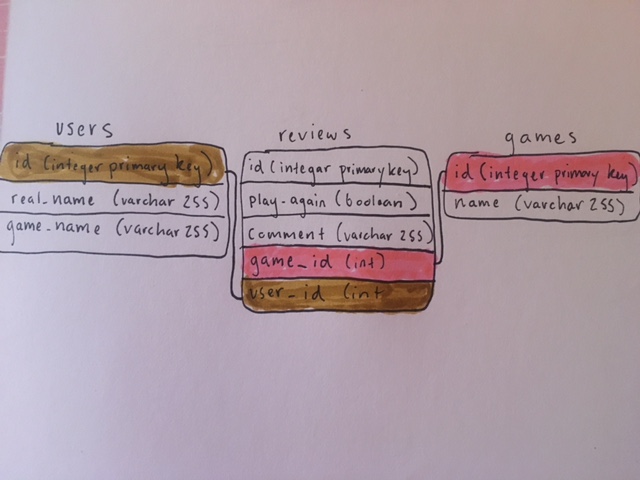 users
id (integer primary key)
real_name (varchar 255)
game_name (varchar 255)
reviews
id (integar primary key)
play_again (boolean)
comment (varchar 255)
game_id (int)
user_id (int
games
id (integer primary key)
name (varchar 255)